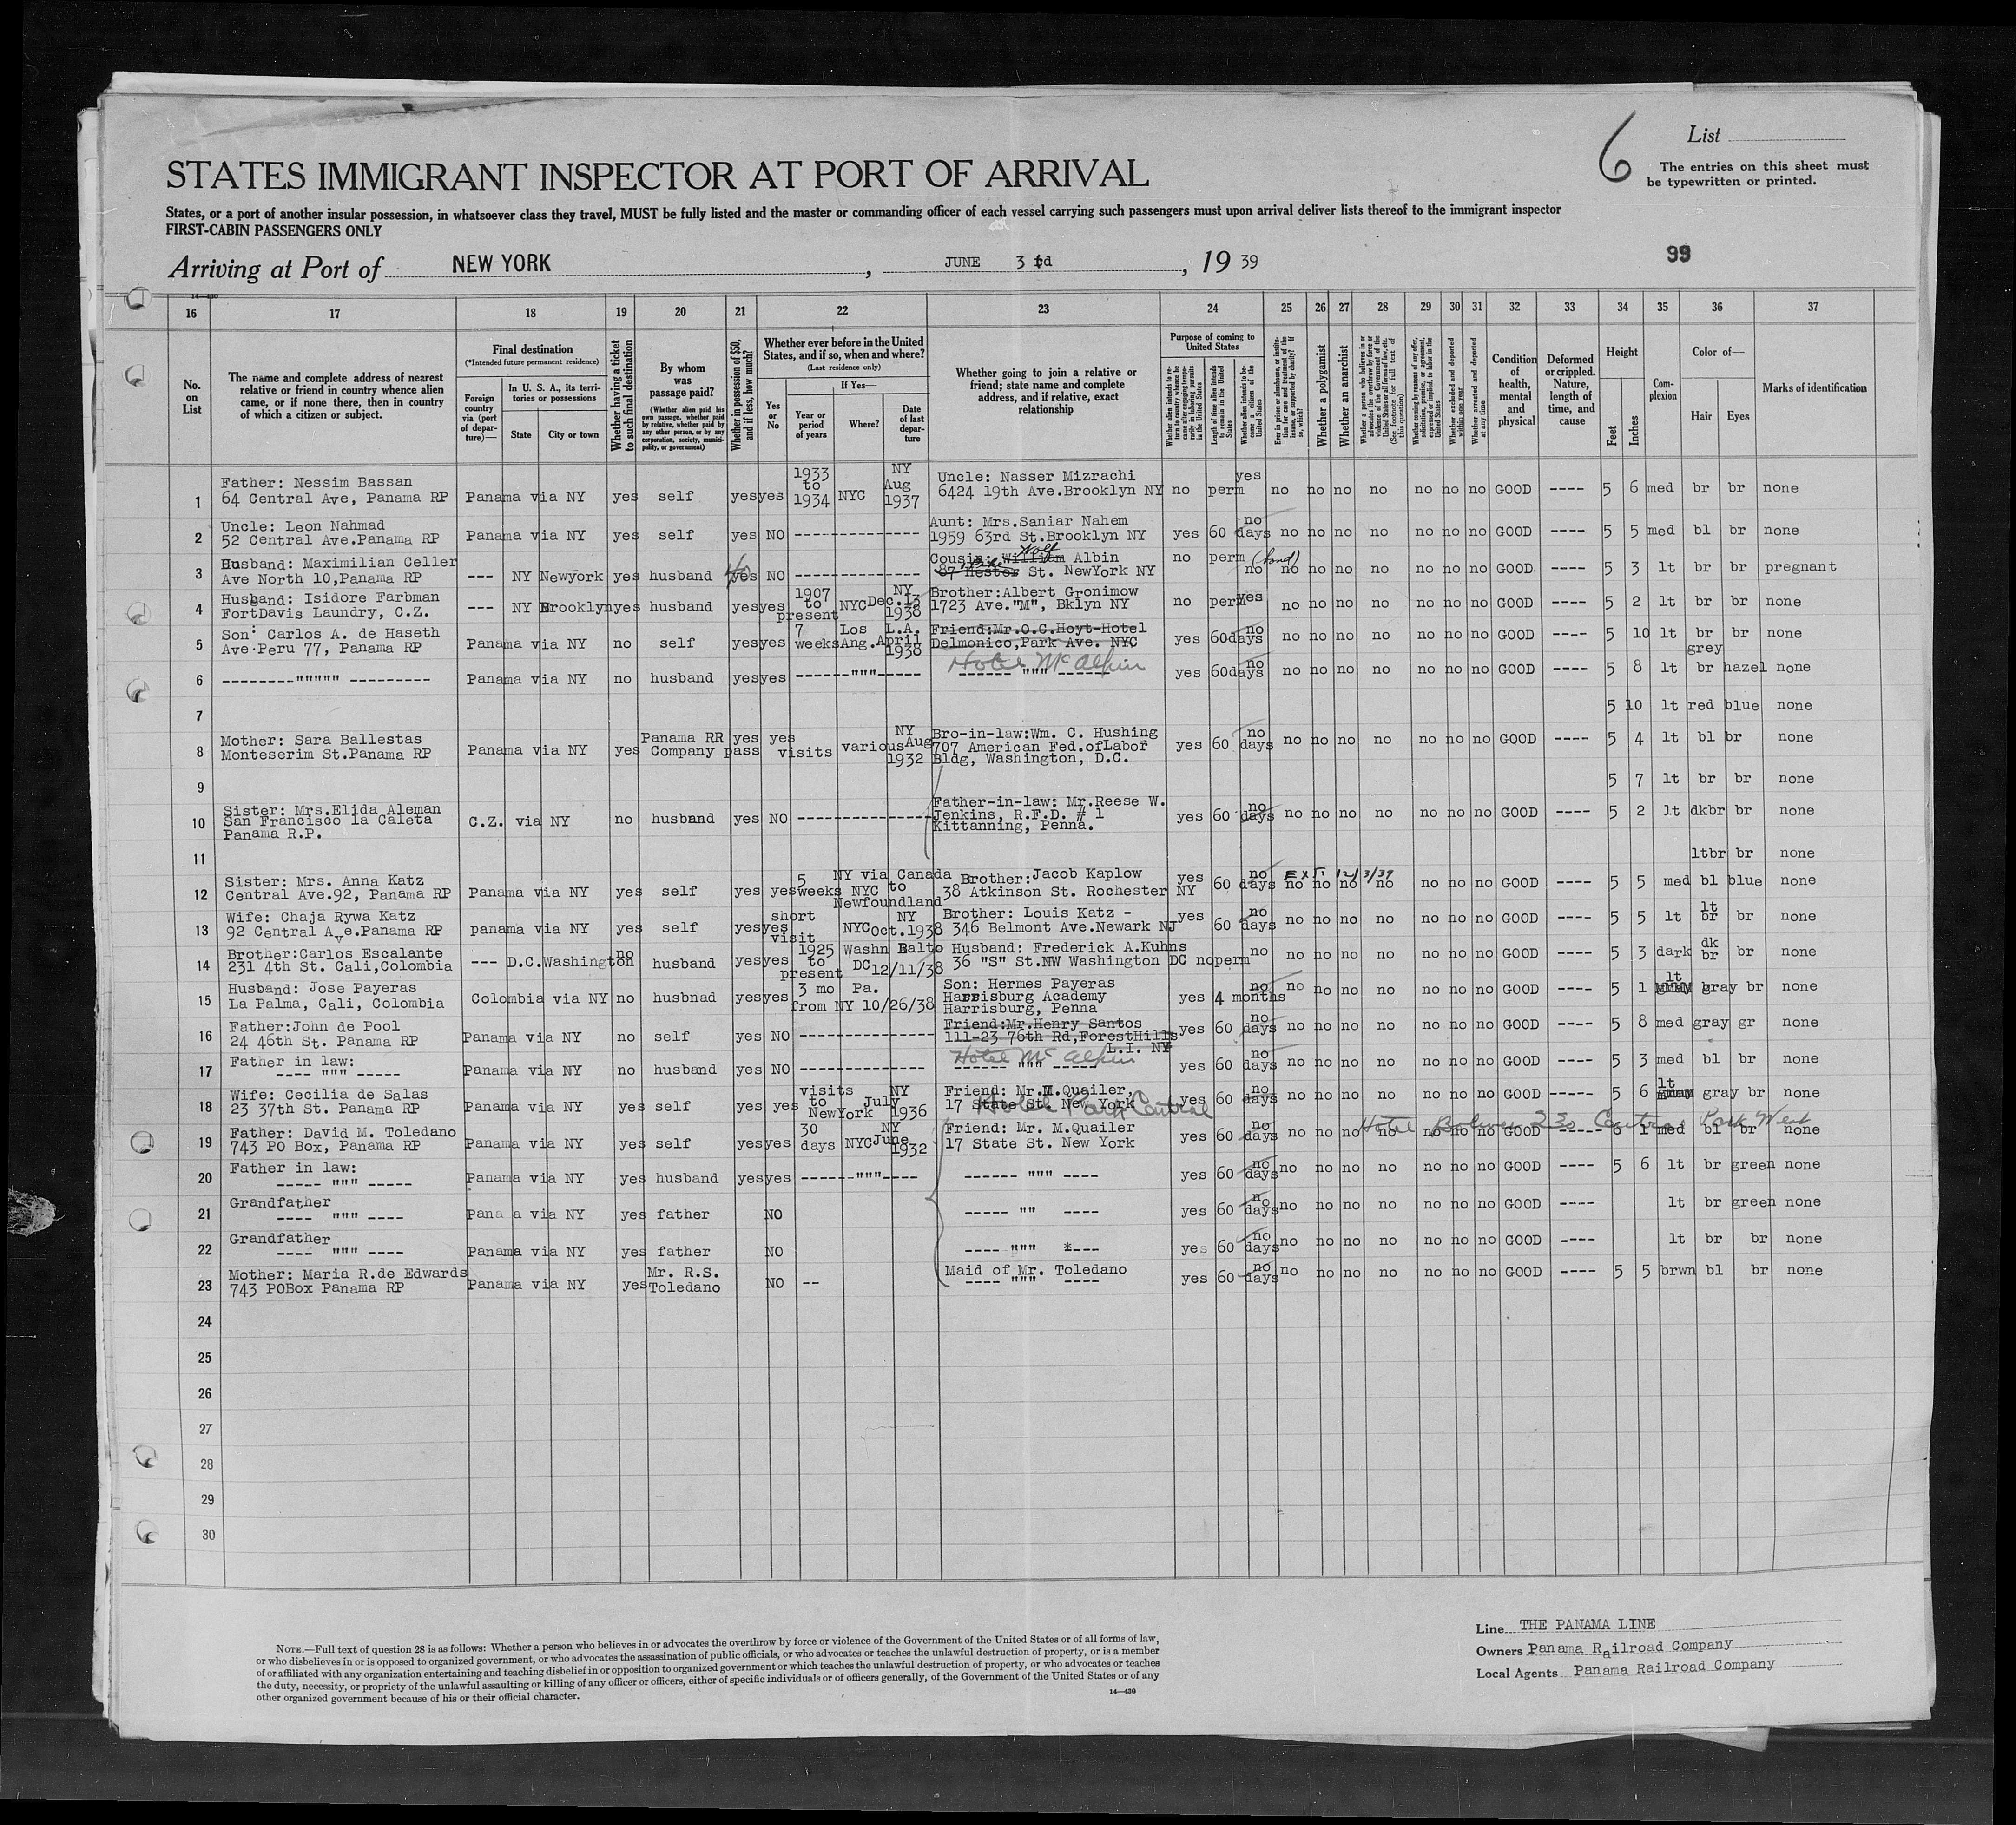 6
List
The entries on this sheet must
be typewritten or printed.
STATES IMMIGRANT INSPECTOR AT PORT OF ARRIVAL
States, or a port of another insular possession, in whatsoever class they travel, MUST be fully listed and the master or commanding officer of each vessel carrying such passengers must upon arrival deliver lists thereof to the immigrant inspector
FIRST-CABIN PASSENGERS ONLY
99
Arriving at Port of NEW YORK, JUNE 3 d, 19 39
14—430
16 17 18 19 20 21 22 23 24 25 26 27 28 29 30 31 32 33 34 35 36 37
No. on List
The name and complete address of nearest relative or friend in country whence alien came, or if none there, then in country of which a citizen or subject.
Final destination
(*Intended future permanent residence)
Foreign country via (port of departure)—
In U. S. A., its territories or possessions
State
City or town
Whether having a ticket to such final destination
By whom was passage paid?
(Whether alien paid his own passage, whether paid by relative, whether paid by any other person, or by any corporation, society, municipality, or government)
Whether in possession of $50, and if less, how much?
Whether ever before in the United States, and if so, when and where?
(Last residence only)
Yes or No
If Yes—
Year or period of years
Where?
Date of last departure
Whether going to join a relative or friend; state name and complete address, and if relative, exact relationship
Purpose of coming to United States
Length of time alien intends to remain in the United States
Whether alien intends to become a citizen of the United States
Whether a polygamist
Whether an anarchist
Whether excluded and deported within one year
Whether arrested and deported at any time
Condition of health, mental and physical
Deformed or crippled. Nature, length of time, and cause
Height
Feet
Inches
Complexion
Color of—
Hair
Eyes
Marks of identification
1 Father: Nessim Bassan 64 Central Ave, Panama RP Panama via NY yes self yes yes 1933 to 1934 NYC NY Aug 1937 Uncle: Nasser Mizrachi 6424 19th Ave.Brooklyn NY no perm yes no no no no no no no GOOD ---- 5 6 med br br none
2 Uncle: Leon Nahmad 52 Central Ave.Panama RP Panama via NY yes self yes NO -------------- Aunt: Mrs.Saniar Nahem 1959 63rd St.Brooklyn NY yes 60 days no no no no no no no no GOOD ---- 5 5 med bl br none
3 Husband: Maximilian Celler Ave North 10,Panama RP --- NY Newyork yes husband yes 40 NO -------------- Cousin: William Wolf Albin 87 Hester St. NewYork NY no perm (bond) no no no no no no no no GOOD ---- 5 3 lt br br pregnant
4 Husband: Isidore Farbman FortDavis Laundry, C.Z. --- NY Brooklyn yes husband yes yes 1907 to present NYC NY Dec.13 1938 Brother:Albert Gronimow 1723 Ave."M", Bklyn NY no perm yes no no no no no no no GOOD ---- 5 2 lt br br none
5 Son: Carlos A. de Haseth Ave.Peru 77, Panama RP Panama via NY no self yes yes 7 weeks Los Ang. L.A. April 1938 Friend:Mr.O.C.Hoyt-Hotel Delmonico,Park Ave. NYC Hotel McAlpin yes 60days no no no no no no no no GOOD ---- 5 10 lt br grey br none
6 --------""""" --------- Panama via NY no husband yes yes ------"""----- ------ """ ------ yes 60days no no no no no no no no GOOD ---- 5 8 lt br hazel none
7 5 10 lt red blue none
8 Mother: Sara Ballestas Monteserim St.Panama RP Panama via NY yes Panama RR Company pass yes yes visits various NY Aug 1932 Bro-in-law:Wm. C. Hushing 707 American Fed.ofLabor Bldg, Washington, D.C. yes 60 days no no no no no no no no GOOD ---- 5 4 lt bl br none
9 5 7 lt br br none
10 Sister: Mrs.Elida Aleman San Francisco la Caleta Panama R.P. C.Z. via NY no husband yes NO -------------- Father-in-law: Mr.Reese W. Jenkins, R.F.D. # 1 Kittanning, Penna. yes 60 days no no no no no no no no GOOD ---- 5 2 lt dkbr br none
11 ltbr br none
12 Sister: Mrs. Anna Katz Central Ave.92, Panama RP Panama via NY yes self yes yes 5 weeks NYC NY via Canada to Newfoundland Brother: Jacob Kaplow 38 Atkinson St. Rochester NY yes 60 days no Ext. 12/3/39 no no no no no no no GOOD ---- 5 5 med bl blue none
13 Wife: Chaja Rywa Katz 92 Central Ave.Panama RP panama via NY yes self yes yes short visit NYC NY oct.1938 Brother: Louis Katz - 346 Belmont Ave.Newark NJ yes 60 days no no no no no no no no GOOD ---- 5 5 lt lt br br none
14 Brother:Carlos Escalante 231 4th St. Cali,Colombia --- D.C.Washington no husband yes yes 1925 to present Washn DC Balto 12/11/38 Husband: Frederick A.Kuhns 36 "S" St.NW Washington DC no perm no no no no no no no no GOOD ---- 5 3 dark dk br br none
15 Husband: Jose Payeras La Palma, Cali, Colombia Colombia via NY no husbnad yes yes 3 mo Pa. from NY 10/26/38 Son: Hermes Payeras Harrisburg Academy Harrisburg, Penna yes 4 months no no no no no no no no GOOD ---- 5 1 lt gray br none
16 Father:John de Pool 24 46th St. Panama RP Panama via NY no self yes NO -------------- Friend:Mr.Henry Santos 111-23 76th Rd,ForestHills L.I. NY Hotel McAlpin yes 60 days no no no no no no no no GOOD ---- 5 8 med gray gr none
17 Father in law: ---- """ ----- Panama via NY no husband yes NO -------------- ------ """ ----- yes 60 days no no no no no no no no GOOD ---- 5 3 med bl br none
18 Wife: Cecilia de Salas 23 37th St. Panama RP Panama via NY yes self yes yes visits to NewYork NY July 1936 Friend: Mr.M.Quailer, 17 State St. New York Hotel Park Central yes 60 days no no no no no no no no GOOD ----- 5 6 lt gray br none
Hotel Bolivar 230 Central Park West
19 Father: David M. Toledano 743 PO Box, Panama RP Panama via NY yes self yes yes 30 days NYC NY June 1932 Friend: Mr. M.Quailer 17 State St. New York yes 60 days no no no no no no no no GOOD ----- 6 1 med bl br none
20 Father in law: ----- """ ----- Panama via NY yes husband yes yes ------"""---- ------ """ ---- yes 60 days no no no no no no no no GOOD ---- 5 6 lt br green none
21 Grandfather ---- """ ---- Pana a via NY yes father NO ----- "" ---- yes 60 days no no no no no no no no GOOD ---- lt br green none
22 Grandfather ---- """ ---- Panama via NY yes father NO ---- """ *--- yes 60 days no no no no no no no no GOOD ---- lt br br none
23 Mother: Maria R.de Edwards 743 POBox Panama RP Panama via NY yes Mr. R.S. Toledano NO -- Maid of Mr. Toledano ---- """ ---- yes 60 days no no no no no no no no GOOD ---- 5 5 brwn bl br none
24
25
26
27
28
29
30
NOTE.—Full text of question 28 is as follows: Whether a person who believes in or advocates the overthrow by force or violence of the Government of the United States or of all forms of law,
or who disbelieves in or is opposed to organized government, or who advocates the assassination of public officials, or who advocates or teaches the unlawful destruction of property, or is a member
of or affiliated with any organization entertaining and teaching disbelief in or opposition to organized government or which teaches the unlawful destruction of property, or who advocates or teaches
the duty, necessity, or propriety of the unlawful assaulting or killing of any officer or officers, either of specific individuals or of officers generally, of the Government of the United States or of any
other organized government because of his or their official character.
14—430
Line THE PANAMA LINE
Owners Panama Railroad Company
Local Agents Panama Railroad Company